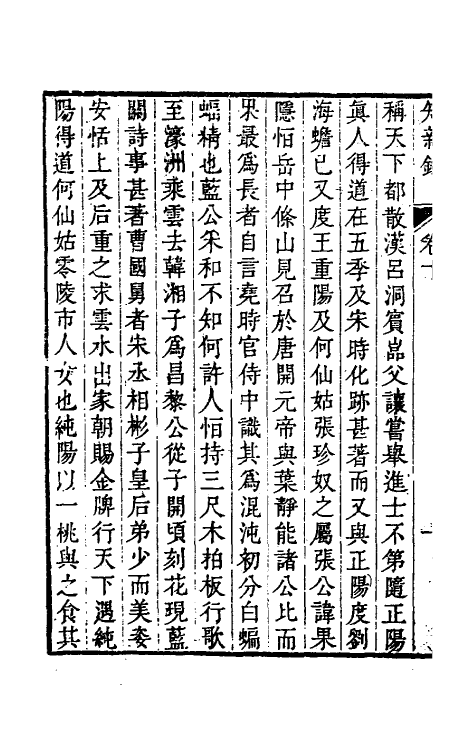 知新錄 卷十
稱天下都散漢呂洞賓嵓父讓嘗舉進士不第隨正陽
眞人得道在五季及宋時化跡甚著而又與正陽度劉
海蟾已又度王重陽及何仙姑張珍奴之屬張公諱果
隱恒岳中條山見召於唐開元帝與葉靜能諸公比而
果最爲長者自言堯時官侍中識其爲混沌初分白蝙
蝠精也藍公采和不知何許人恒持三尺木拍板行歌
至濠洲乘雲去韓湘子爲昌黎公從子開頃刻花現藍
關詩事甚著曹國舅者宋丞相彬子皇后弟少而美姿
安恬上及后重之求雲水出家朝賜金牌行天下遇純
陽得道何仙姑零陵市人女也純陽以一桃與之食其